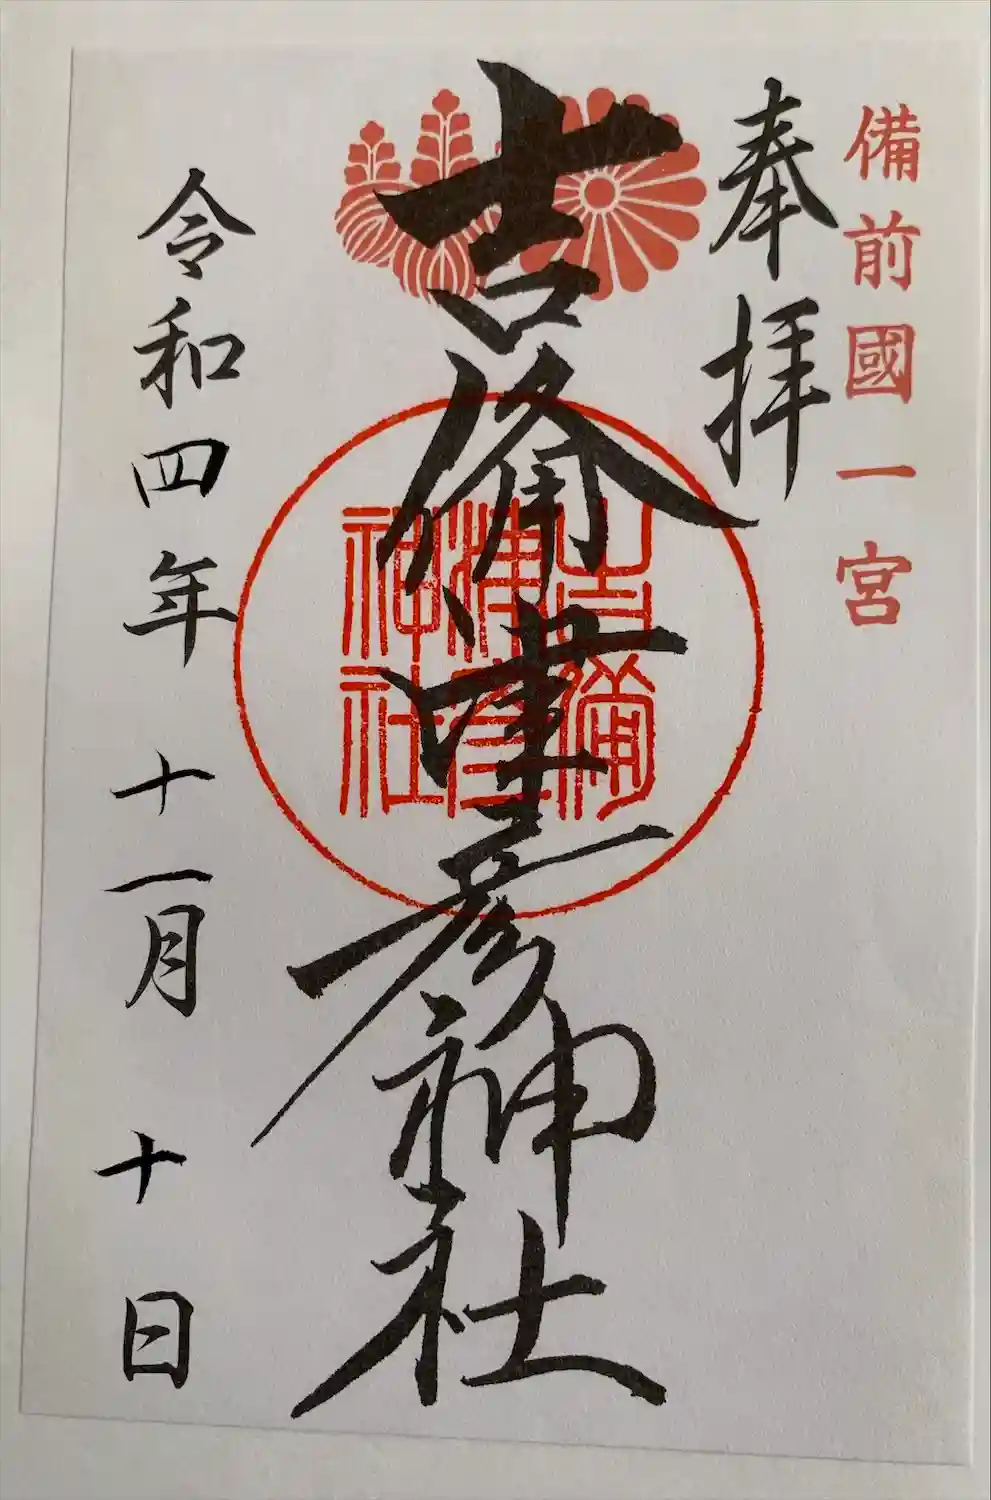 備前國一宮
奉拝
吉備津彦神社
吉備
津彦
神社
令和四年十一月十日